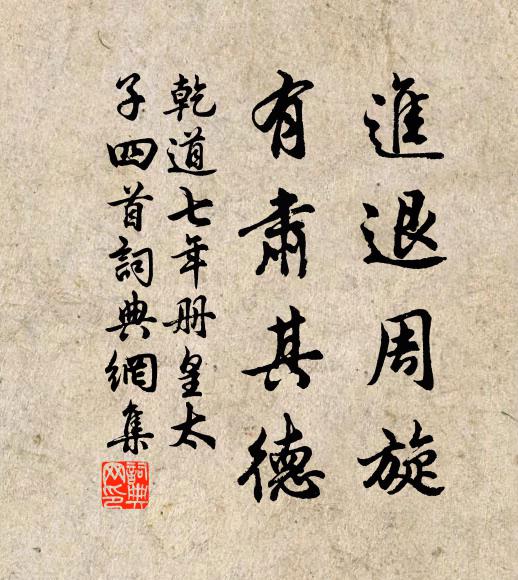 進退周旋
有肅其德
乾道七年册皇太
子四首詞典網集
詞典
网印